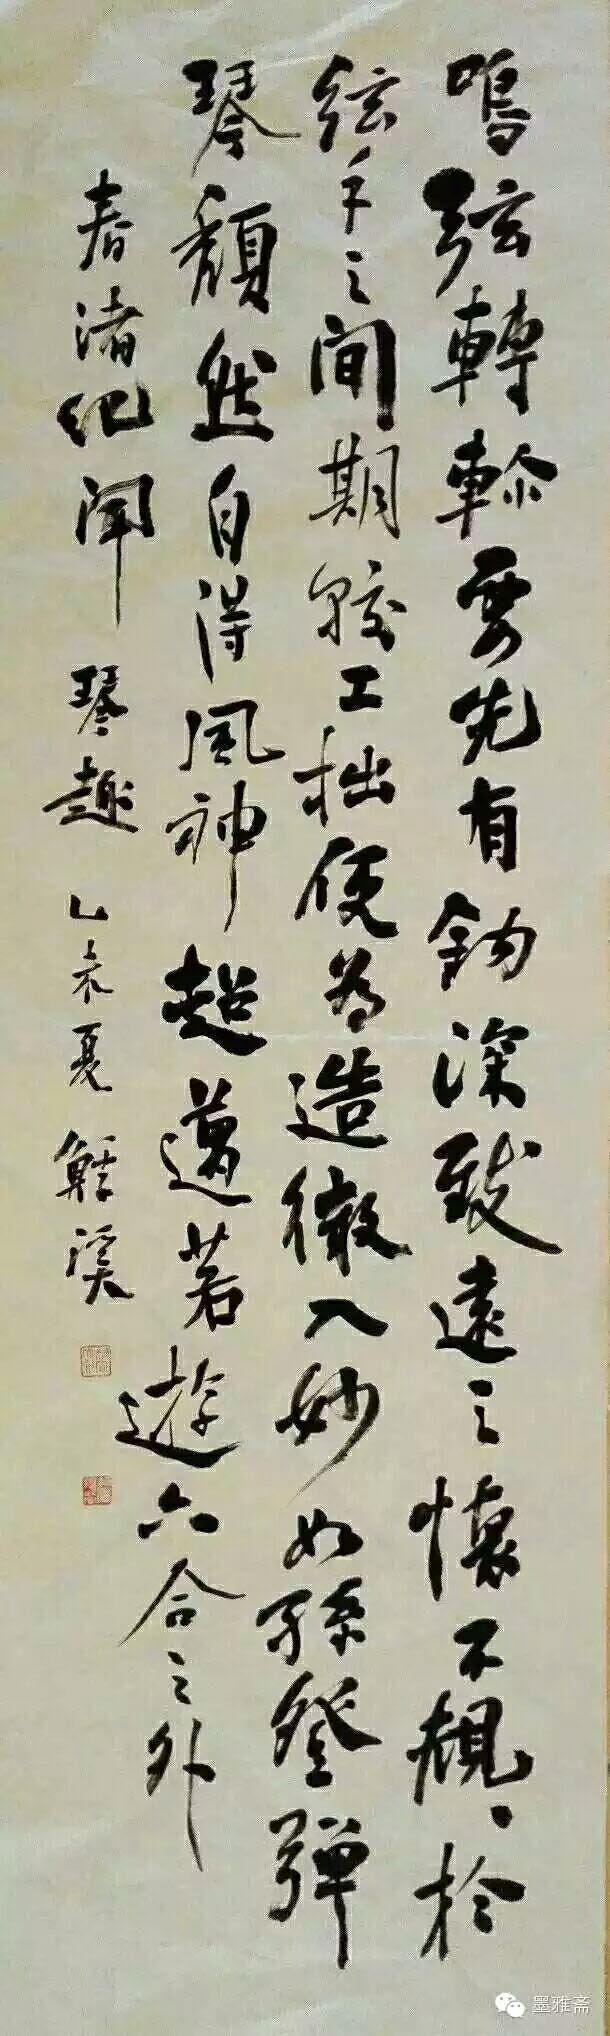 鳴弦轉軫要先有鈎深致遠之懷不規規於
絃手之間期較工拙便為造微入妙如孫登彈
琴頹然自得風神超邁若遊六合之外
春渚紀聞 琴趣 乙未夏
墨雅斋